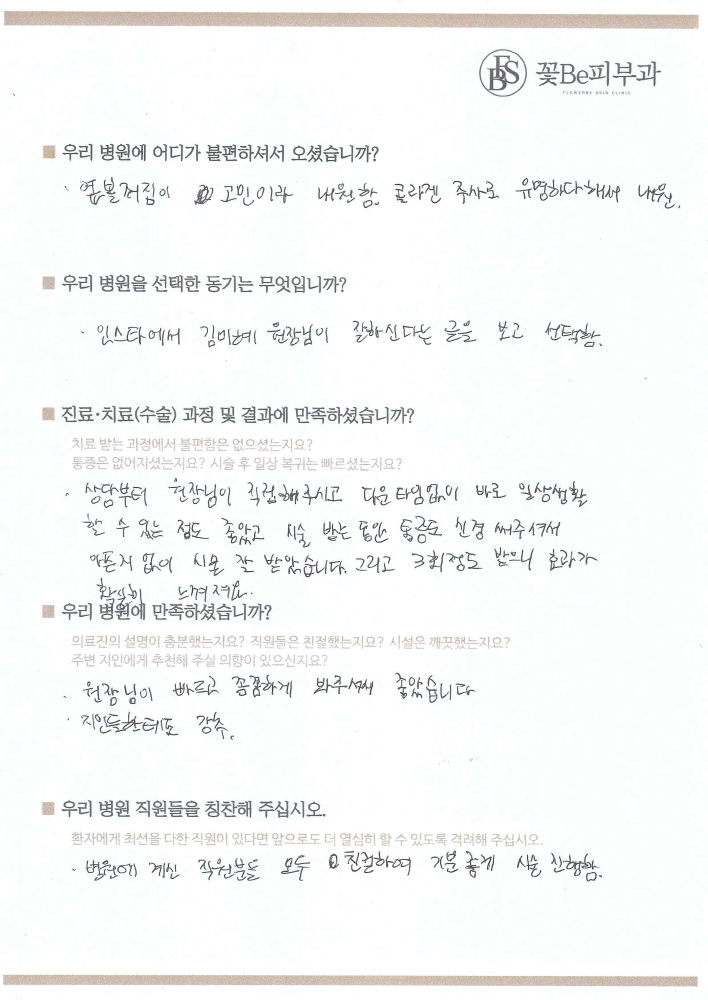 FBS 꽃Be피부과
FLOWERBE SKIN CLINIC
우리 병원에 어디가 불편하셔서 오셨습니까?
· 옆볼꺼짐이 고민이라 내원함. 콜라겐 주사로 유명하다해서 내원.
우리 병원을 선택한 동기는 무엇입니까?
· 인스타에서 김미혜 원장님이 잘하신다는 글을 보고 선택함.
진료·치료(수술) 과정 및 결과에 만족하셨습니까?
치료 받는 과정에서 불편함은 없으셨는지요?
통증은 없어지셨는지요? 시술 후 일상 복귀는 빠르셨는지요?
· 상담부터 원장님이 직접해주시고 다운타임없이 바로 일상생활
할 수 있는 점도 좋았고 시술 받는 동안 통증도 신경 써주셔서
아픈거 없이 시술 잘 받았습니다. 그리고 3회정도 받으니 효과가
확실히 느껴져요.
우리 병원에 만족하셨습니까?
의료진의 설명이 충분했는지요? 직원들은 친절했는지요? 시설은 깨끗했는지요?
주변 지인에게 추천해 주실 의향이 있으신지요?
· 원장님이 빠르고 꼼꼼하게 봐주셔서 좋았습니다
· 지인들한테도 강추.
우리 병원 직원들을 칭찬해 주십시오.
환자에게 최선을 다한 직원이 있다면 앞으로도 더 열심히 할 수 있도록 격려해 주십시오.
· 병원에 계신 직원분들 모두 친절하여 기분 좋게 시술 진행함.